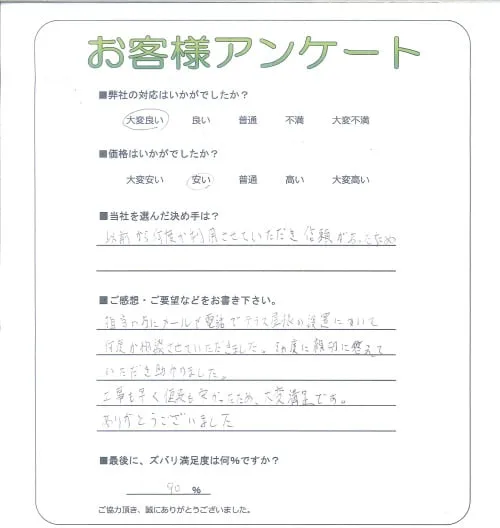 お客様アンケート
■弊社の対応はいかがでしたか？
大変良い 良い 普通 不満 大変不満
■価格はいかがでしたか？
大変安い 安い 普通 高い 大変高い
■当社を選んだ決め手は？
以前から何度か利用させていただき信頼があったため
■ご感想・ご要望などをお書き下さい。
担当の方にメールや電話でテラス屋根の設置について
何度か相談させていただきました。毎度に親切に答えて
いただき助かりました。
工事も早く値段も安かったため、大変満足です。
ありがとうございました
■最後に、ズバリ満足度は何％ですか？
90 ％
ご協力頂き、誠にありがとうございました。